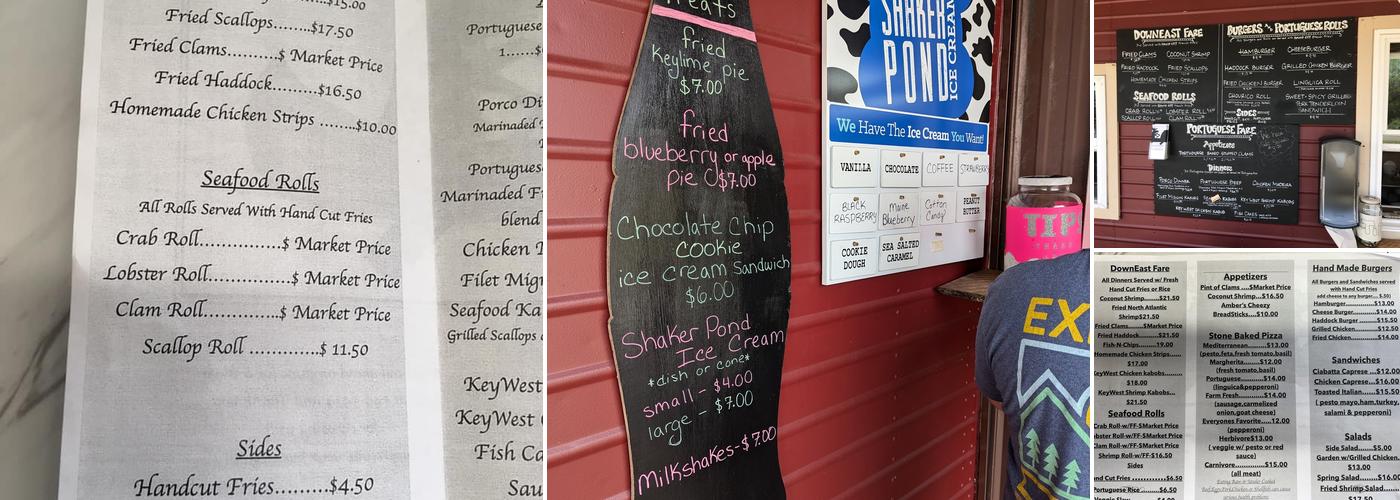 $15.00
Fried Scallops........$17.50
Fried Clams.......$ Market Price
Fried Haddock.........$16.50
Homemade Chicken Strips ........$10.00
Seafood Rolls
All Rolls Served With Hand Cut Fries
Crab Roll...............$ Market Price
Lobster Roll...............$ Market Price
Clam Roll...............$ Market Price
Scallop Roll .............$ 11.50
Sides
Handcut Fries...........$4.50
Portuguese
1......$
Porco Di
Marinaded
Portugues
Marinaded F
blend
Chicken
Filet Mig
Seafood Ka
Grilled Scallops
KeyWest
KeyWest
Fish Ca
Sau
Treats
fried
keylime pie
$7.00
fried
blueberry or apple
pie $7.00
Chocolate Chip
cookie
ice cream Sandwich
$6.00
Shaker Pond
Ice Cream
*dish or cone*
small - $4.00
large - $7.00
Milkshakes-$7.00
SHAKER
POND
ICE CREAM
We Have The Ice Cream You Want!
VANILLA CHOCOLATE COFFEE STRAWBERRY
BLACK RASPBERRY Maine Blueberry Cotton Candy PEANUT BUTTER
COOKIE DOUGH SEA SALTED CARAMEL
TIP
EX
DOWNEAST FARE
FRIED CLAMS COCONUT SHRIMP
FRIED HADDOCK FRIED SCALLOPS
HOMEMADE CHICKEN STRIPS
SEAFOOD ROLLS
CRAB ROLL LOBSTER ROLL
SCALLOP ROLL CLAM ROLL
BURGERS PORTUGUESE ROLLS
HAMBURGER CHEESEBURGER
HADDOCK BURGER GRILLED CHICKEN BURGER
FRIED CHICKEN BURGER LINGUICA ROLL
CHOURICO ROLL SWEET+SPICY GRILLED
PORK TENDERLOIN
SANDWICH
SIDES
PORTUGUESE FARE
Appetizers
PORTUGUESE BAKED STUFFED CLAMS
Dinners
PORCO DINNER PORTUGUESE BEEF CHICKEN MADEIRA
FILET MIGNON KABOB KEY WEST SHRIMP KABOBS
KEY WEST CHICKEN KABOBS FISH CAKES
DownEast Fare
All Dinners Served w/ Fresh
Hand Cut Fries or Rice
Coconut Shrimp.......$21.50
Fried North Atlantic
Shrimp$21.50
Fried Clams.......$Market Price
Fried Haddock......$21.50
Fish-N-Chips......19.00
Homemade Chicken Strips......
$17.00
KeyWest Chicken kabobs........
$18.00
KeyWest Shrimp Kabobs...
$21.50
Seafood Rolls
Crab Roll-w/FF-$Market Price
Lobster Roll-w/FF-$Market Price
Clam Roll-w/FF-$Market Price
Shrimp Roll-w/FF-$16.50
Sides
Hand Cut Fries ............$6.50
Portuguese Rice ..........$6.50
Appetizers
Pint of Clams ....$Market Price
Coconut Shrimp...$16.50
Amber's Cheezy
BreadSticks.....$10.00
Stone Baked Pizza
Mediterranean.......$13.00
(pesto,feta,fresh tomato,basil)
Margherita........$12.00
(fresh tomato,basil)
Portuguese.........$14.00
(linguica&pepperoni)
Farm Fresh.........$14.00
(sausage,carmelized
onion,goat cheese)
Everyones Favorite.....12.00
(pepperoni)
Herbivore$13.00
( veggie w/ pesto or red
sauce)
Carnivore.........$15.00
(all meat)
Hand Made Burgers
All Burgers and Sandwiches served
with Hand Cut Fries
add cheese to any burger.... $.50)
Hamburger...........$13.00
Cheese Burger......$14.00
Haddock Burger ....$15.50
Grilled Chicken......$12.50
Fried Chicken......$14.00
Sandwiches
Ciabatta Caprese ...$12.00
Chicken Caprese.....$16.00
Toasted Italian......$15.50
( pesto mayo,ham,turkey,
salami & pepperoni)
Salads
Side Salad......$5.00
Garden w/Grilled Chicken..
$13.00
Spring Salad
Fried Shrimp Salad